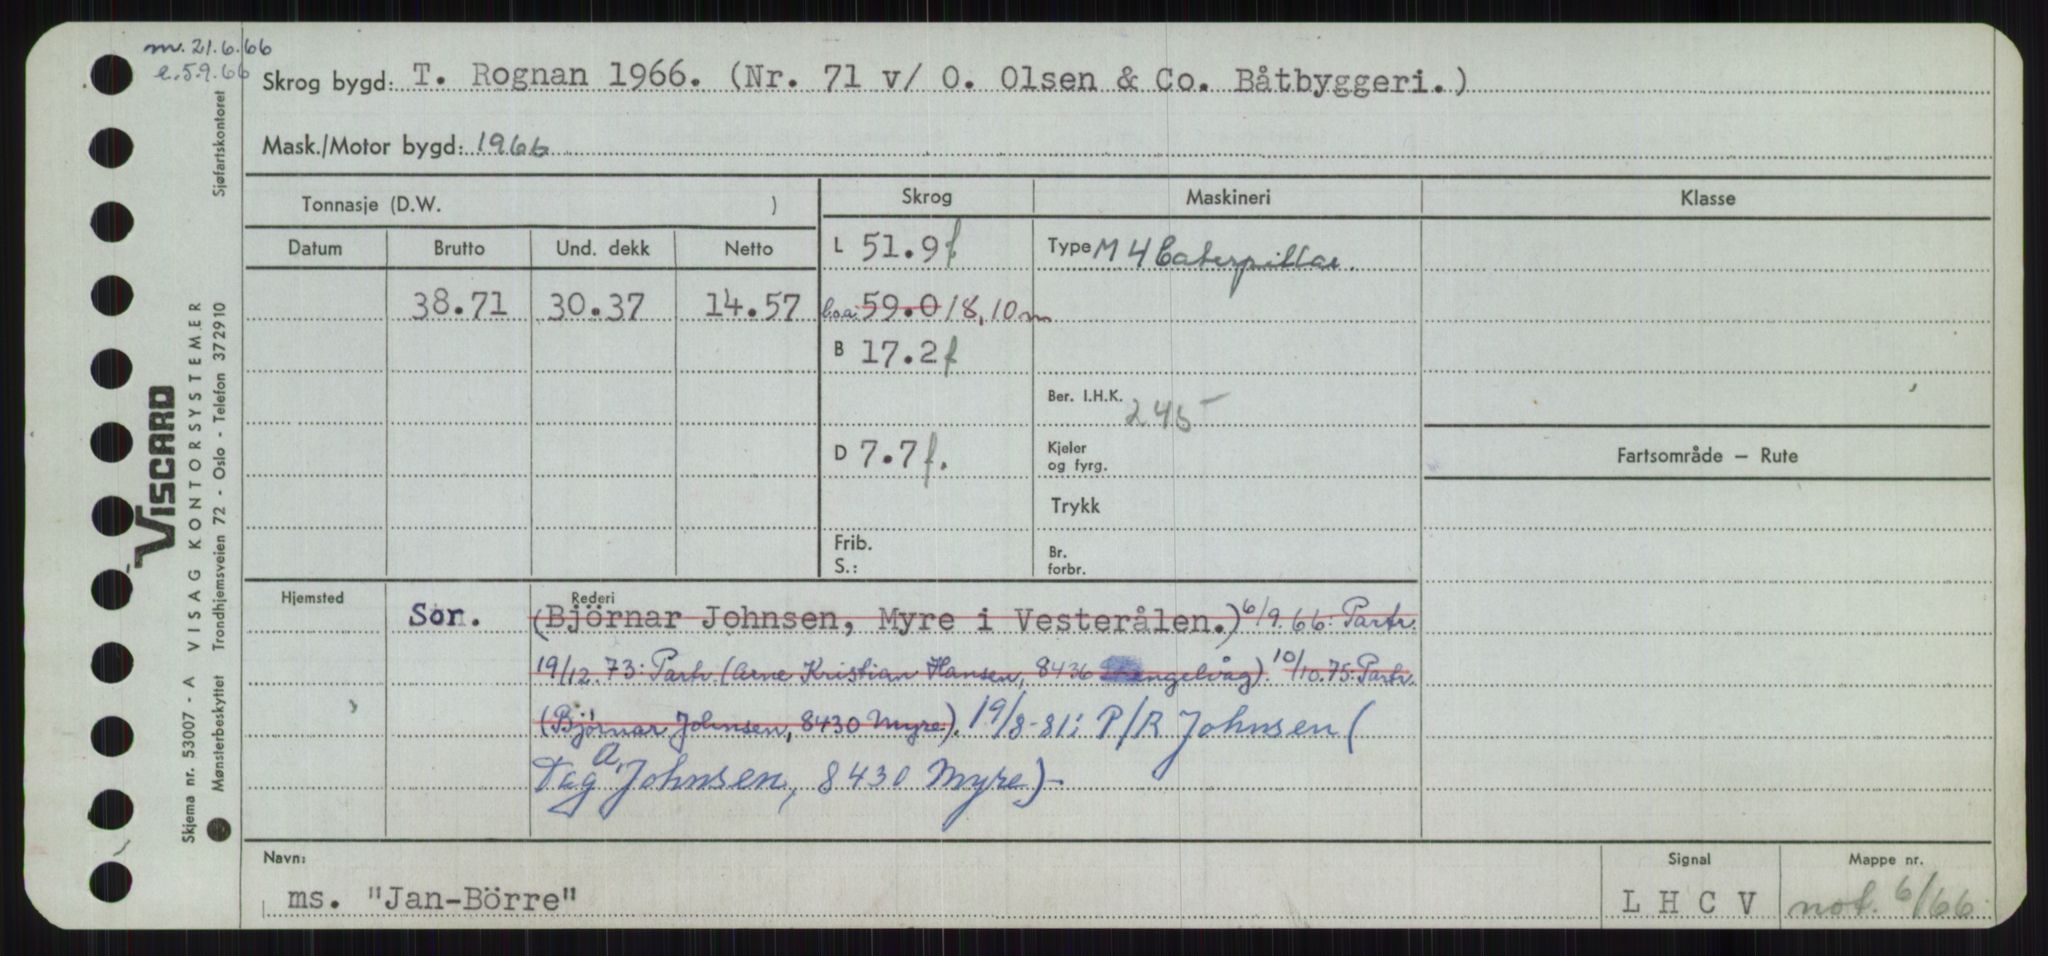 m. 21.6.66
e. 5.9.66
Skrog bygd: T. Rognan 1966. (Nr. 71 v/ O. Olsen & Co. Båtbyggeri.)
Mask./Motor bygd: 1966
Tonnasje (D.W. )
Skrog
Maskineri
Klasse
Datum
Brutto
Und. dekk
Netto
L 51.9 f
Type M 4 Caterpillar.
38.71
30.37
14.57
l.o.a. 59.0 18,10 m
B 17.2 f
Ber. I.H.K. 245
D 7.7 f.
Kjeler
og fyrg.
Fartsområde – Rute
Trykk
Frib.
S.:
Br.
forbr.
Hjemsted
Son.
Rederi
(Björnar Johnsen, Myre i Vesterålen.) 6/9.66: Partr.
19/12.73: Partr. (Arne Kristian Hansen, 8436 engelvåg). 10/10.75: Partr.
(Björnar Johnsen, 8430 Myre). 19/8-81: P/R Johnsen (
Dag A. Johnsen, 8430 Myre)-
Navn:
ms. "Jan-Börre"
Signal
L H C V
Mappe nr.
not. 6/66
VISCARD
Skjema nr. 53007 - A VISAG KONTORSYSTEMER
Mønsterbeskyttet Trondhjemsveien 72 - Oslo - Telefon 372910 Sjøfartskontoret